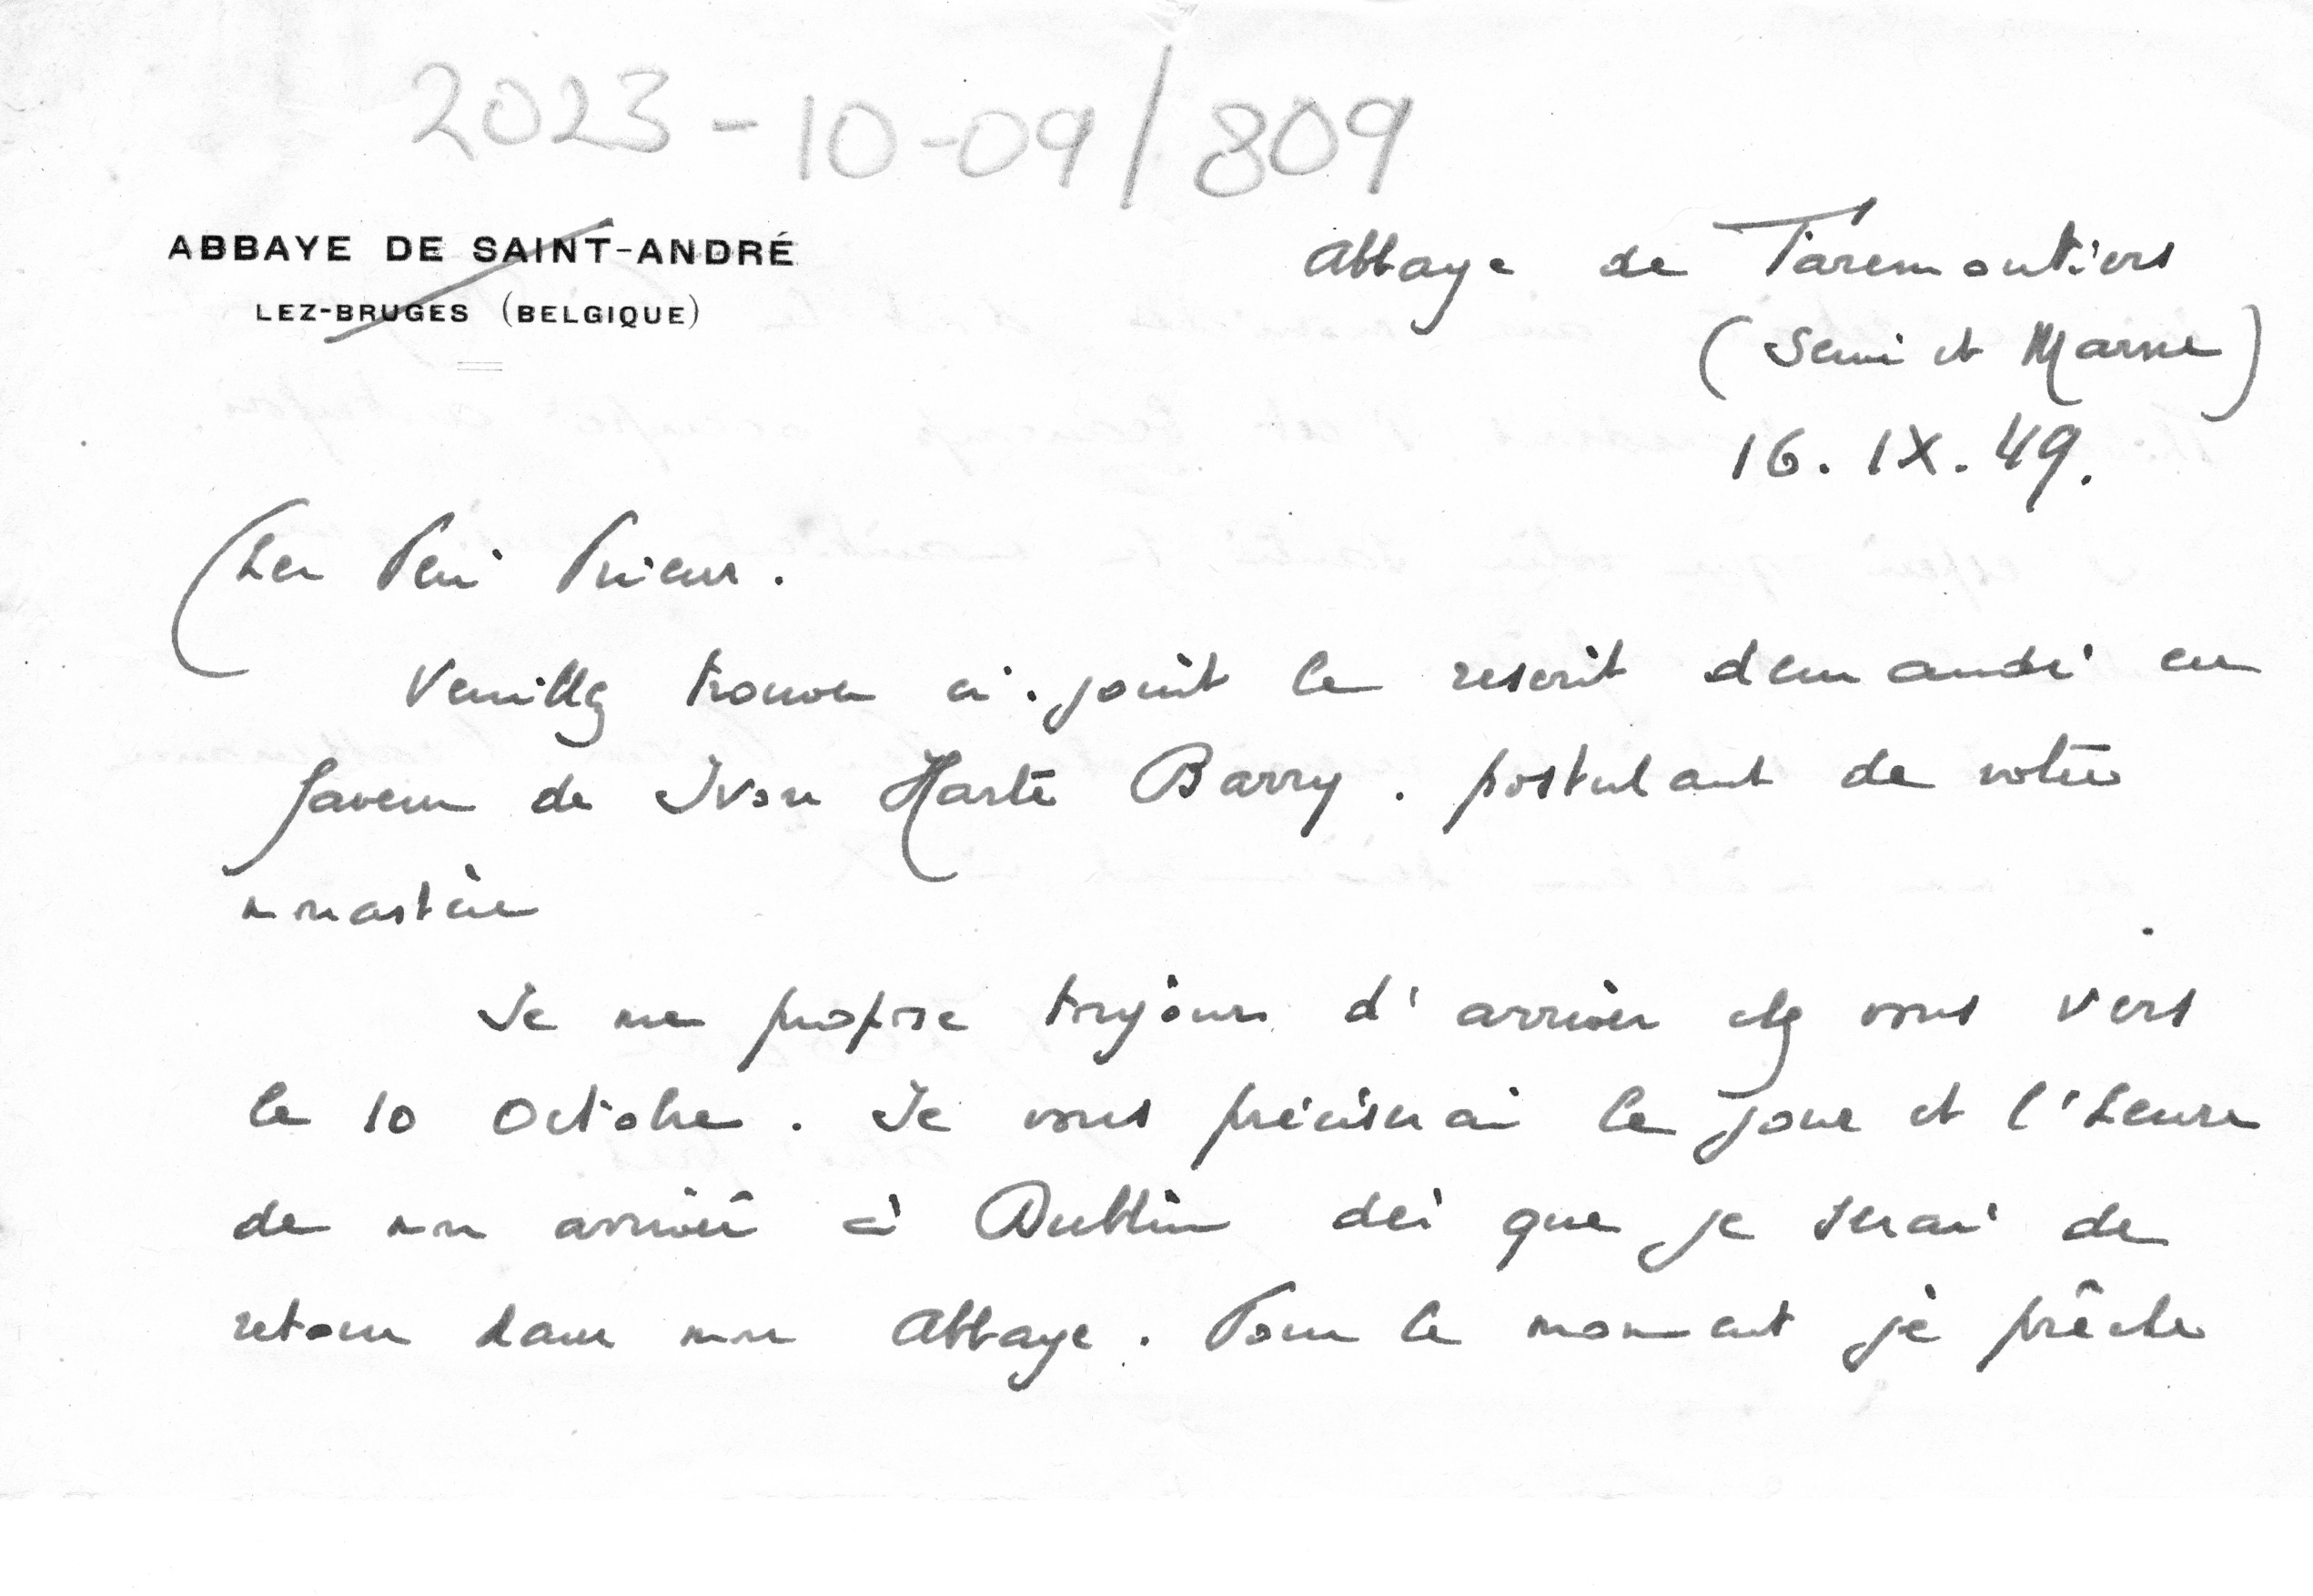 2023-10-09/809
ABBAYE DE SAINT-ANDRÉ
LEZ-BRUGES (BELGIQUE)
Abbaye de Faremoutiers
(Seine et Marne)
16.IX.49.
Cher Père Prieur.
Veuillez trouver ci-joint le rescrit demandé en
faveur de Ivor Harte Barry. postulant de votre
monastère
Je me propose toujours d'arriver chez vous vers
le 10 Octobre. Je vous préciserai le jour et l'heure
de mon arrivée à Dublin dès que je serai de
retour dans mon Abbaye. Pour le moment je prêche